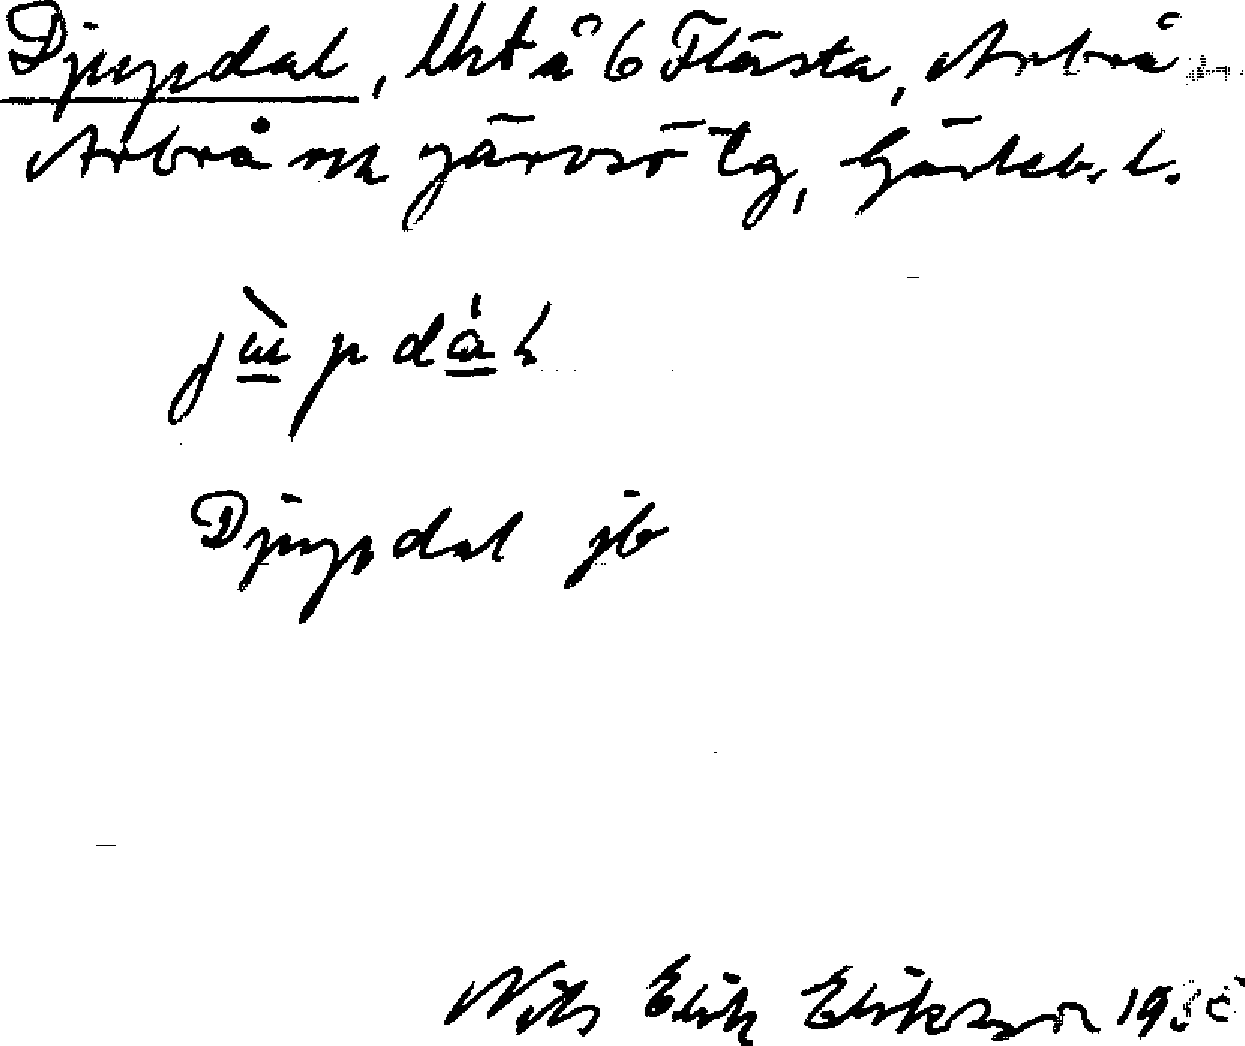 Djupdal, Urt å 6 Flästa, Arbrå
Arbrå o Järvsö tg, Gävleb. l.
jùpdál
Djupdal jb
Nils Erik Eriksson 19